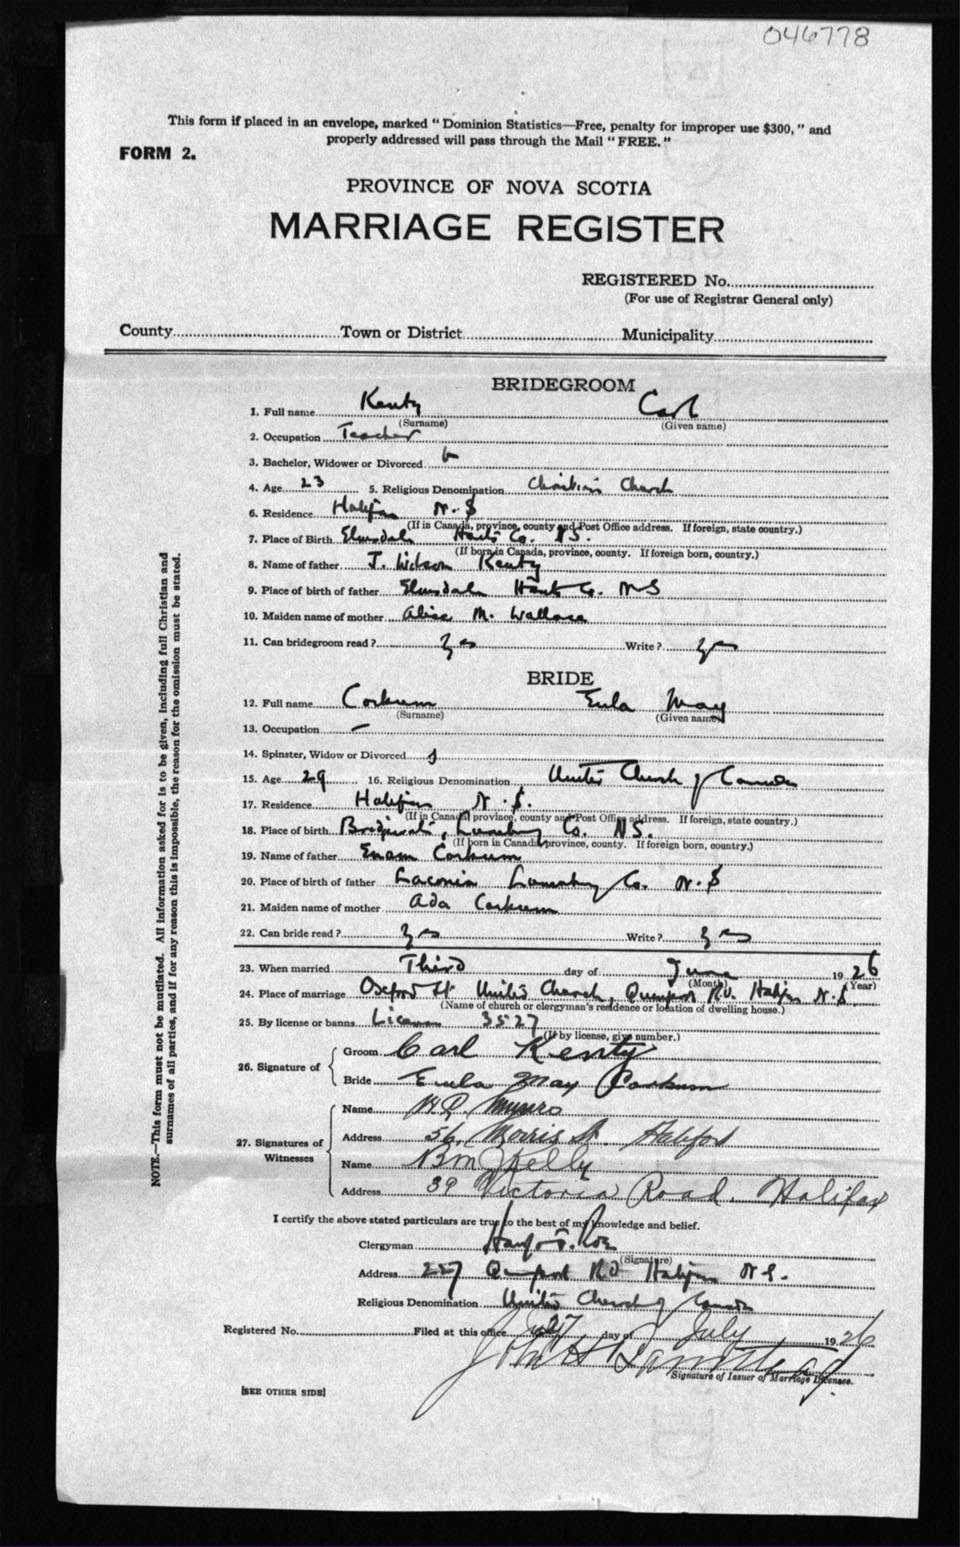 046778
This form if placed in an envelope, marked "Dominion Statistics—Free, penalty for improper use $300," and
properly addressed will pass through the Mail "FREE."
FORM 2.
PROVINCE OF NOVA SCOTIA
MARRIAGE REGISTER
REGISTERED No.
(For use of Registrar General only)
County Town or District Municipality
BRIDEGROOM
1. Full name Kenty Carl
(Surname) (Given name)
2. Occupation Teacher
3. Bachelor, Widower or Divorced b
4. Age 23 5. Religious Denomination Christian Church
6. Residence Halifax N.S
(If in Canada, province, county and Post Office address. If foreign, state country.)
7. Place of Birth Elmsdale Hants Co. N.S.
(If born in Canada, province, county. If foreign born, country.)
8. Name of father J. Kenty
9. Place of birth of father Elmsdale Hants Co. N S
10. Maiden name of mother Alice M. Wallace
11. Can bridegroom read? yes Write? yes
BRIDE
12. Full name Corkum Eula May
(Surname) (Given name)
13. Occupation —
14. Spinster, Widow or Divorced s
15. Age 29 16. Religious Denomination United Church of Canada
17. Residence Halifax N.S.
(If in Canada, province, county and Post Office address. If foreign, state country.)
18. Place of birth Lunenburg Co. N.S.
(If born in Canada, province, county. If foreign born, country.)
19. Name of father Corkum
20. Place of birth of father Laconia Lunenburg Co. N.S
21. Maiden name of mother Ada Corkum
22. Can bride read? yes Write? yes
23. When married Third day of June 1926
(Month) (Year)
24. Place of marriage Oxford St United Church, Quinpool Rd. Halifax N.S.
(Name of church or clergyman's residence or location of dwelling house.)
25. By license or banns License 3527
(If by license, give number.)
26. Signature of
Groom Carl Kenty
Bride Eula May Corkum
27. Signatures of
Witnesses
Name Munro
Address 56 Morris St. Halifax
Name Kelly
Address 39 Victoria Road. Halifax
I certify the above stated particulars are true to the best of my knowledge and belief.
Clergyman
(Signature)
Address 227 Quinpool Rd Halifax N.S.
Religious Denomination United Church of Canada
Registered No. Filed at this office 27 day of July 1926
John H
Signature of Issuer of Marriage Licenses.
[SEE OTHER SIDE]
NOTE.—This form must not be mutilated. All information asked for is to be given, including full Christian and
surnames of all parties, and if for any reason this is impossible, the reason for the omission must be stated.